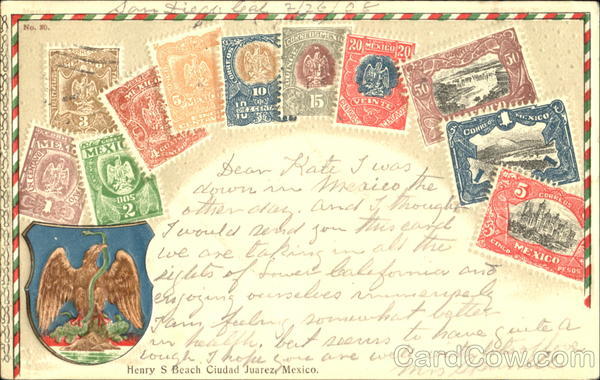 San Diego Cal 2/26/08
No. 30.
MEXICO
3
4
5
CORREOS
10
DIEZ CENTS
CORREOS MEXICO
QUINCE
15
20 MEXICO 20
VEINTE
50
50
CORREOS
1
MEXICO
5 CORREOS
MEXICO
CINCO PESOS
MEXICO
1
MEXICO
DOS
2
Dear Kate I was
down in Mexico the
other day. and I thought
I would send you this card
we are taking in all the
sights of Lower California and
enjoying ourselves immensely
I am feeling somewhat better
in health. but seems to have quite a
cough. I hope you are well love
Mrs
Henry S Beach Ciudad Juarez, Mexico.
CardCow.com